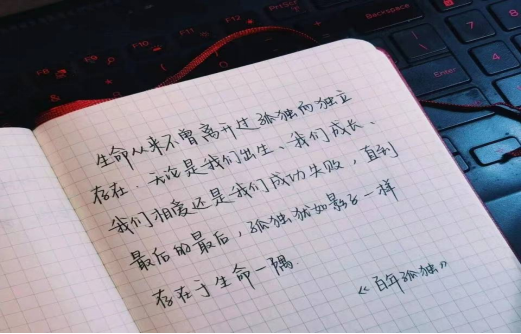 F8
F9
F10
F12
Backspace
7
4
Enter
生命从来不曾离开过孤独而独立
存在.无论是我们出生、我们成长、
我们相爱还是我们成功失败,直到
最后的最后,孤独犹如影子一样
存在于生命一隅.
《百年孤独》